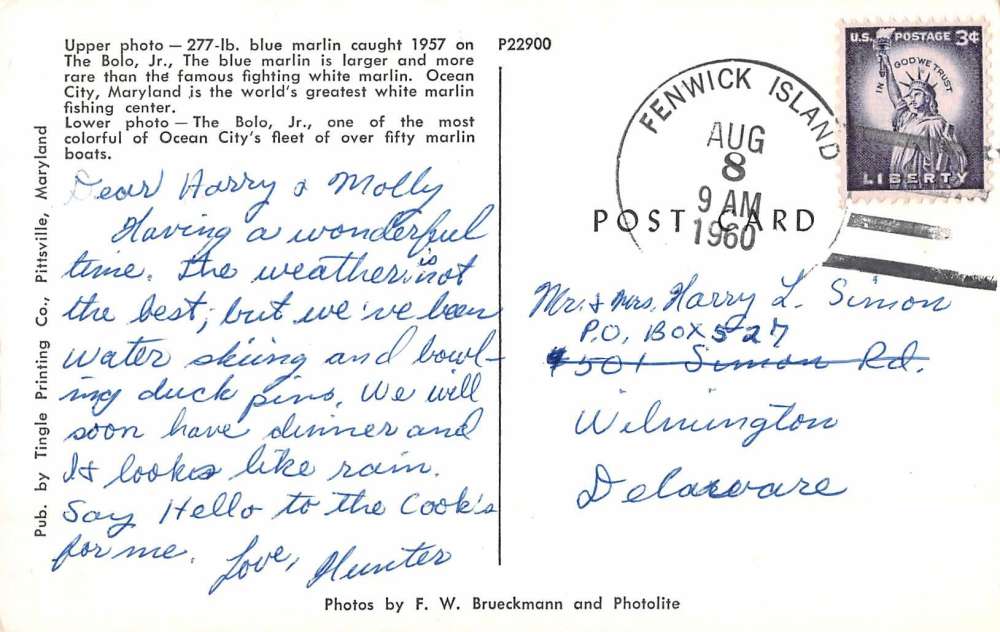 Upper photo — 277-lb. blue marlin caught 1957 on
The Bolo, Jr., The blue marlin is larger and more
rare than the famous fighting white marlin. Ocean
City, Maryland is the world's greatest white marlin
fishing center.
Lower photo — The Bolo, Jr., one of the most
colorful of Ocean City's fleet of over fifty marlin
boats.
P22900
Pub. by Tingle Printing Co., Pittsville, Maryland
Dear Harry & Molly
Having a wonderful
time. The weather is not
the best, but we've been
water skiing and bowl-
ing duck pins. We will
soon have dinner and
It looks like rain.
Say Hello to the Cook's
for me.
Love, Hunter
FENWICK ISLAND
AUG
8
9 AM
1960
U.S. POSTAGE 3¢
IN GOD WE TRUST
LIBERTY
POST CARD
Mr. & Mrs. Harry L. Simon
P.O. BOX 527
501 Simon Rd.
Wilmington
Delaware
Photos by F. W. Brueckmann and Photolite